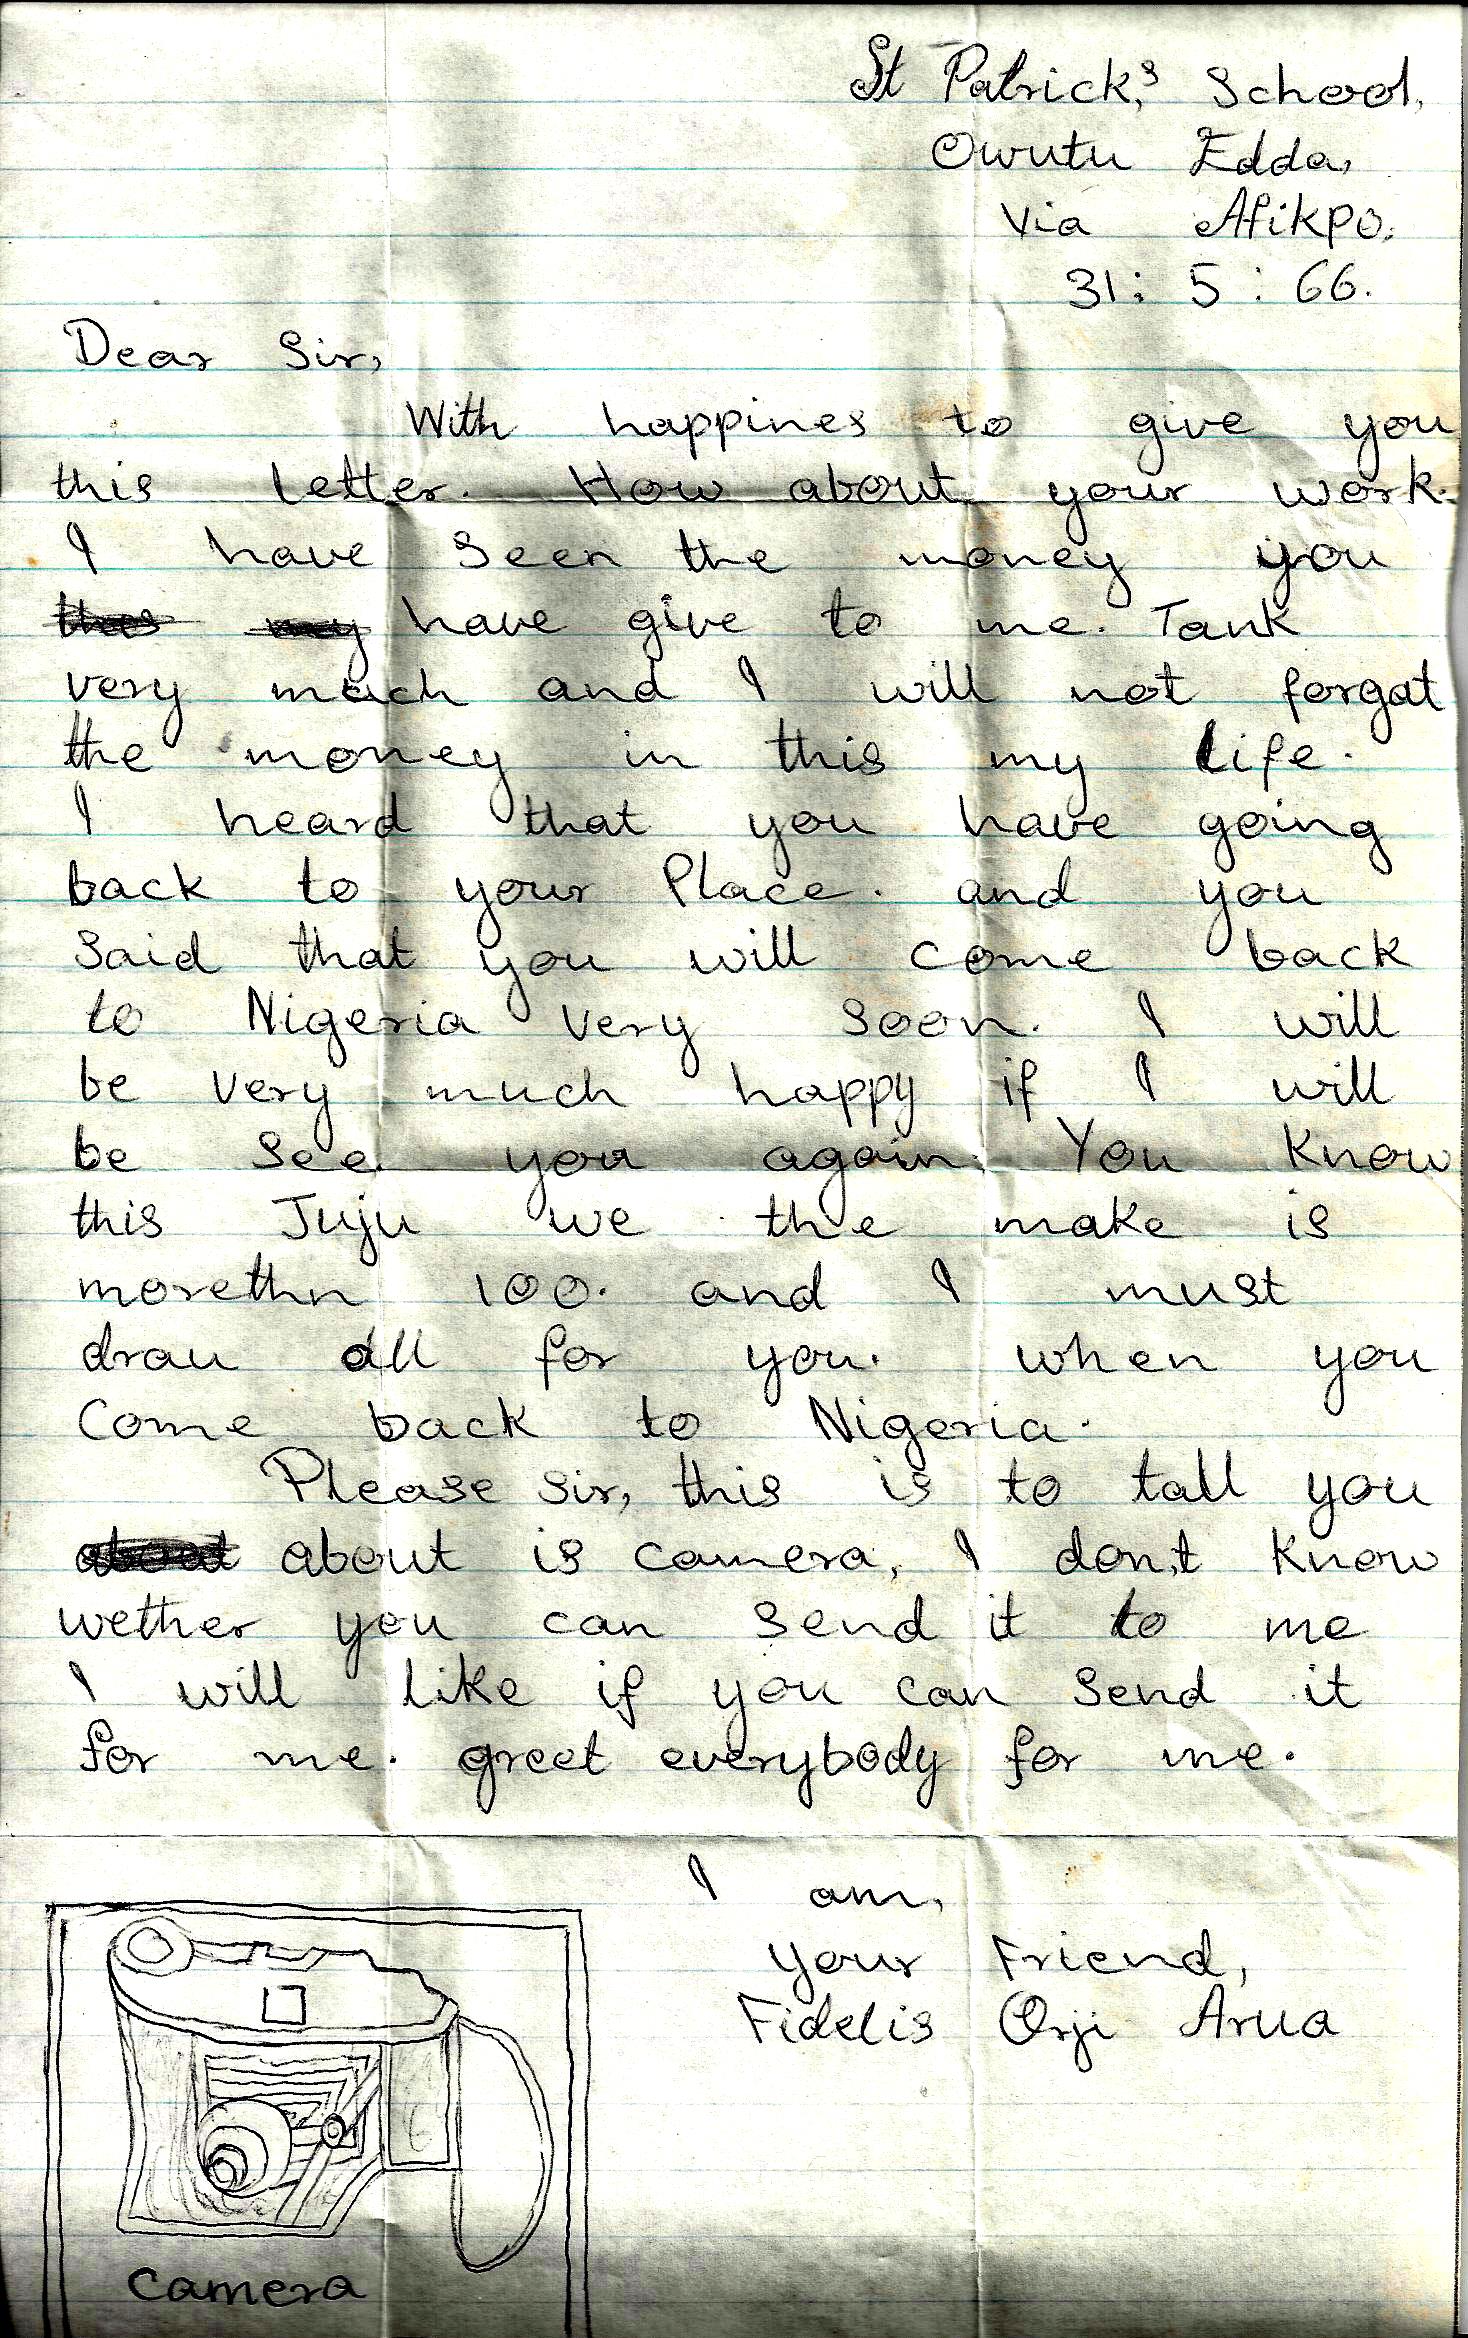 St Patrick,s School,
Owutu Edda,
Via Afikpo.
31: 5 : 66.
Dear Sir,
With happines to give you
this letter. How about your work.
I have seen the money you
have give to me. Tank
very much and I will not forgat
the money in this my life.
I heard that you have going
back to your Place. and you
said that you will come back
to Nigeria very soon. I will
be very much happy if I will
be see you again. You know
this Juju we the make is
morethn 100. and I must
drau all for you. when you
Come back to Nigeria.
Please sir, this is to tall you
about is camera, I don,t know
wether you can send it to me
I will like if you can send it
for me. greet everybody for me.
I am,
your Friend,
Fidelis Orji Arua
camera